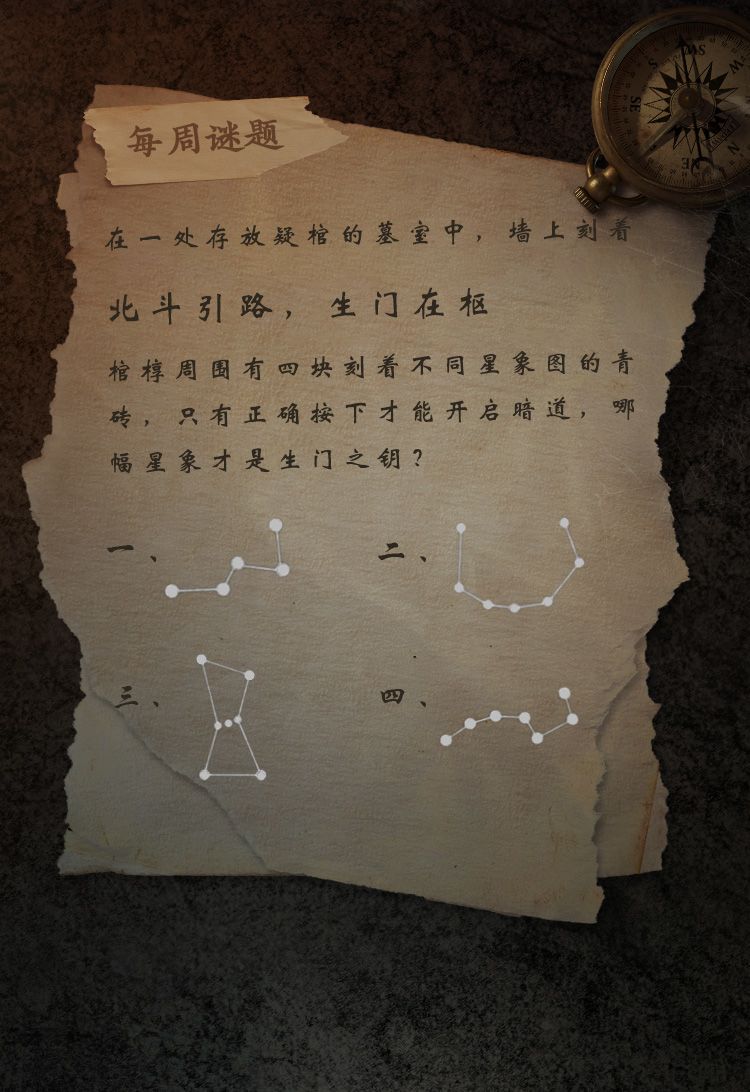 每周谜题
在一处存放疑棺的墓室中，墙上刻着
北斗引路，生门在枢
棺椁周围有四块刻着不同星象图的青
砖，只有正确按下才能开启暗道，哪
幅星象才是生门之钥？
一、
二、
三、
四、